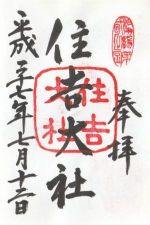 奉拝
住吉大社
住吉
大社
平成二十六年七月十二日